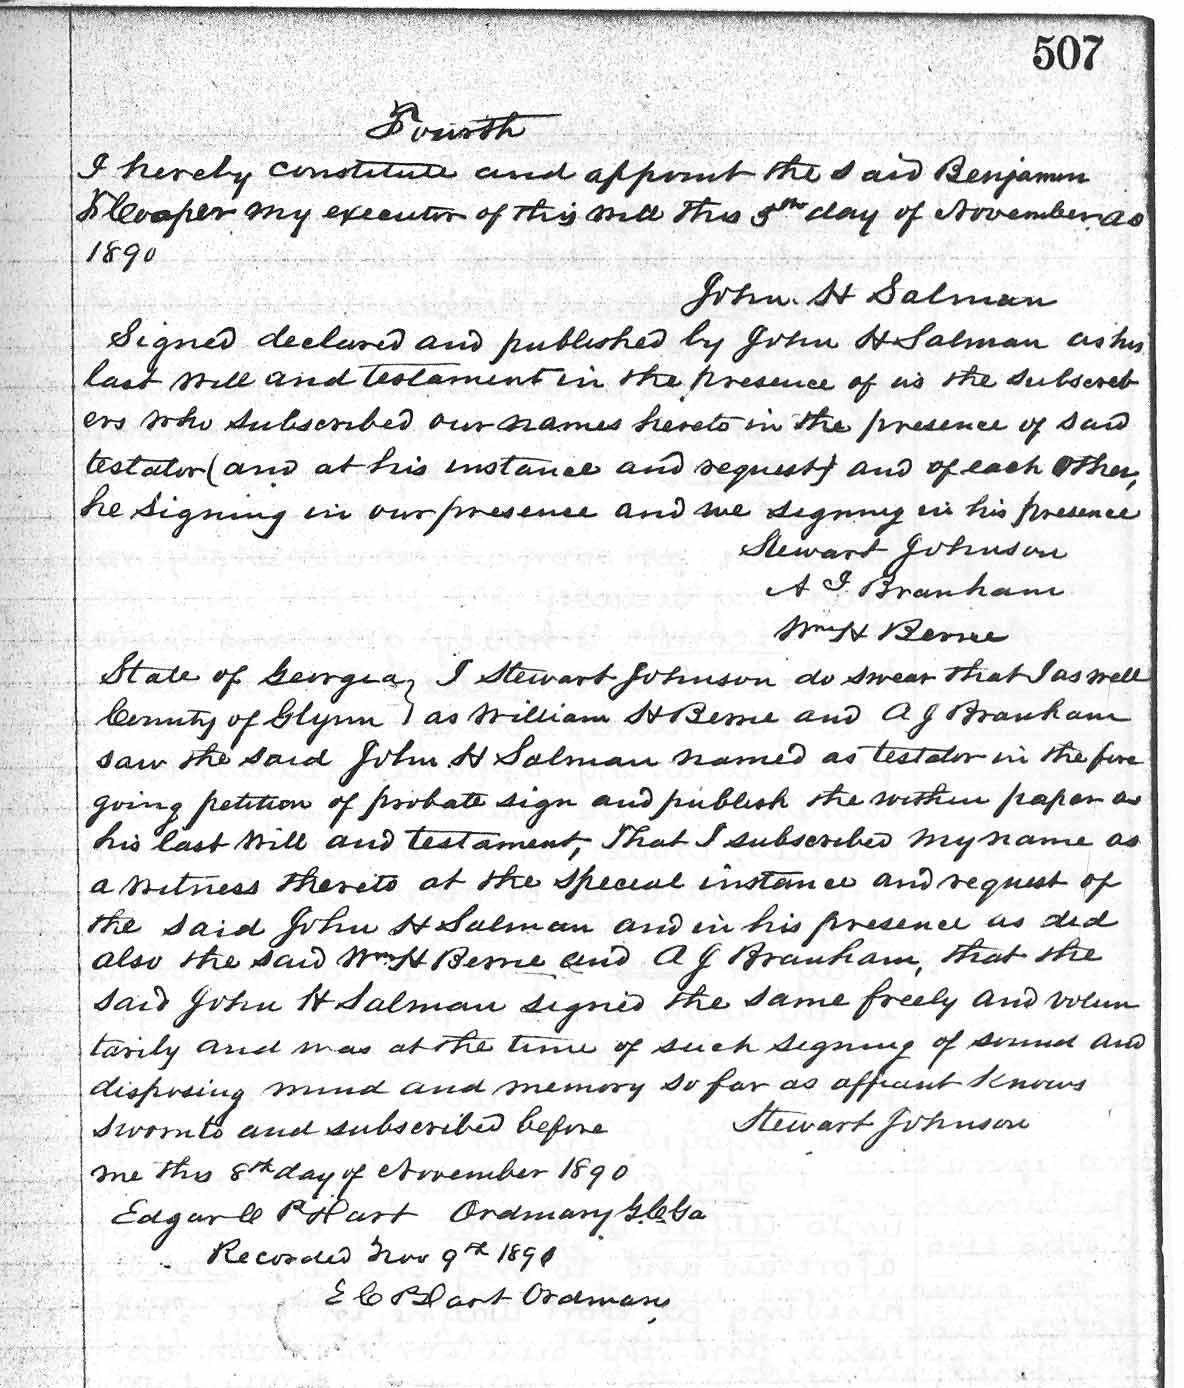 507
Fourth
I hereby constitute and appoint the said Benjamin
F Cooper my executor of this will this 5th day of November AD
1890
John. H Salman
Signed declared and published by John H Salman as his
last will and testament in the presence of us the subscrib
ers who subscribed our names hereto in the presence of said
testator (and at his instance and request) and of each other,
he signing in our presence and we signing in his presence
Stewart Johnson
A J Branham
Wm H Berrie
State of Georgia } I Stewart Johnson do swear that I as well
County of Glynn } as William H Berrie and A J Branham
saw the said John H Salman named as testator in the fore
going petition of probate sign and publish the within paper as
his last will and testament, That I subscribed my name as
a witness thereto at the special instance and request of
the said John H Salman and in his presence as did
also the said Wm H Berrie and A J Branham, that the
said John H Salman signed the same freely and volun
tarily and was at the time of such signing of sound and
disposing mind and memory so far as affiant knows
Sworn to and subscribed before Stewart Johnson
me this 8th day of November 1890
Edgar C P Hart Ordinary G.C. Ga
Recorded Nov 9th 1890
E C P Hart Ordinary